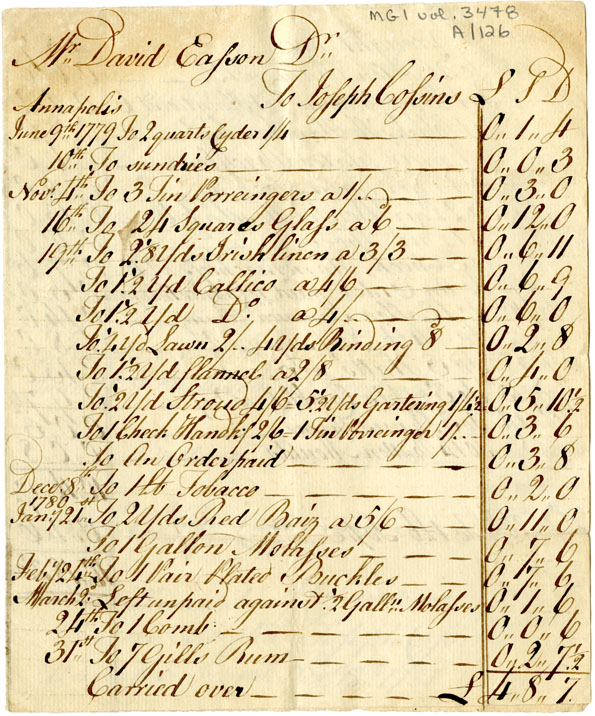 MG1 vol. 3478
A/126
Mr. David Easson Dr.
To Joseph Cossins £ S D
Annapolis
June 9th 1779 To 2 quarts Cyder 1/4 0 .. 1 .. 4
10th To sundries 0 .. 0 .. 3
Novr. 4th To 3 Tin Porreingers a 1/. 0 .. 3 .. 0
16th To 24 Squares Glass a 6d 0 .. 12 .. 0
19th To 2.'8 Yds Irish linen a 3/3 0 .. 6 .. 11
To 1.'2 Yd Callico a 4/6 0 .. 6 .. 9
To 1.'2 Yd Do. a 4/. 0 .. 6 .. 0
To Yd Lawn 2/.. 4 Yds Binding 8d 0 .. 2 .. 8
To 1.'2 Yd flannel a 2/8 0 .. 4 .. 0
To .'2 Yd Stroud 4/6 = 5.'2 Yds Gartering 0 .. 5 .. 10.'2
To 1 Check Handkf 2/6 = 1 Tin Porreinger 1/. 0 .. 3 .. 6
To An Order paid 0 .. 3 .. 8
Decr. 8th To 1 lb Tobacco 0 .. 2 .. 0
1780
Jany. 21st To 2 Yds Red Baiz a 5/6 0 .. 11 .. 0
To 1 Gallon Molasses 0 .. 7 .. 6
Feby. 24th To 1 Pair Plated Buckles 0 .. 7 .. 6
March 2d Left unpaid against .'2 Galln. Molasses 0 .. 1 .. 6
24th To 1 Comb 0 .. 0 .. 6
31st To 7 Gills Rum 0 .. 2 .. 7.'2
Carried over £ 4 .. 8 .. 7